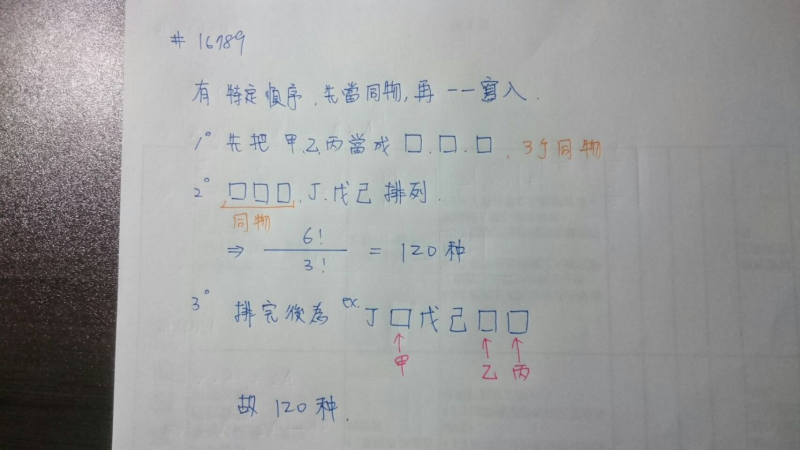 # 16789
有特定順序,先當同物,再一一寫入.
1° 先把甲.乙.丙當成□.□.□. 3个同物
2° □□□.丁.戊己排列.
同物
⇒ 6!/3! = 120种
3° 排完後為 ex.丁□戊己□□
↑甲 ↑乙 ↑丙
故120种.